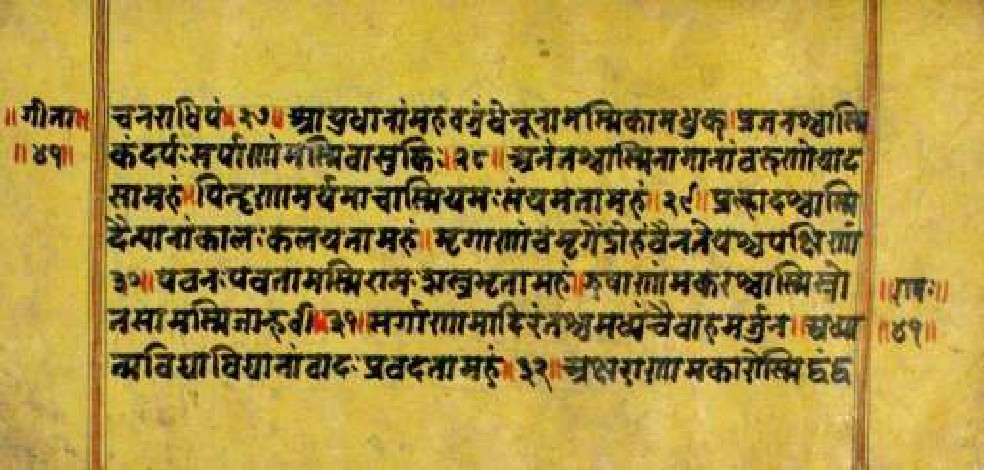 ॥गीता॥ चनराधिपं॥२७॥आयुधानामहंवज्रंधेनूनामस्मिकामधुक्॥प्रजनश्चास्मि
॥४१॥ कंदर्पःसर्पाणांमस्मिवासुकिः॥२८॥अनंतश्चास्मिनागानांवरुणोयाद
सामहं॥पितॄणामर्यमाचास्मियमःसंयमतामहं॥२९॥प्रल्हादश्चास्मि
दैत्यानांकालःकलयतामहं॥मृगाणांचमृगेंद्रोहंवैनतेयश्चपक्षिणां
३०॥पवनःपवतामस्मिरामःशस्त्रभृतामहं॥झषाणांमकरश्चास्मिस्रो ॥रामः॥
तसामस्मिजान्हवी॥३१॥सर्गाणामादिरंतश्चमध्यंचैवाहमर्जुन॥अध्या ॥४१॥
त्मविद्याविद्यानांवादःप्रवदतामहं॥३२॥अक्षराणामकारोस्मिद्वंद्व